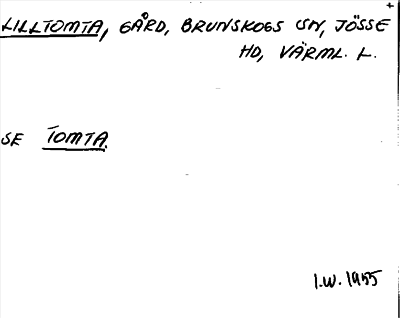 LILLTOMTA, GÅRD, BRUNSKOGS SN, JÖSSE
HD, VÄRML. L.
SE TOMTA.
I.W. 1955